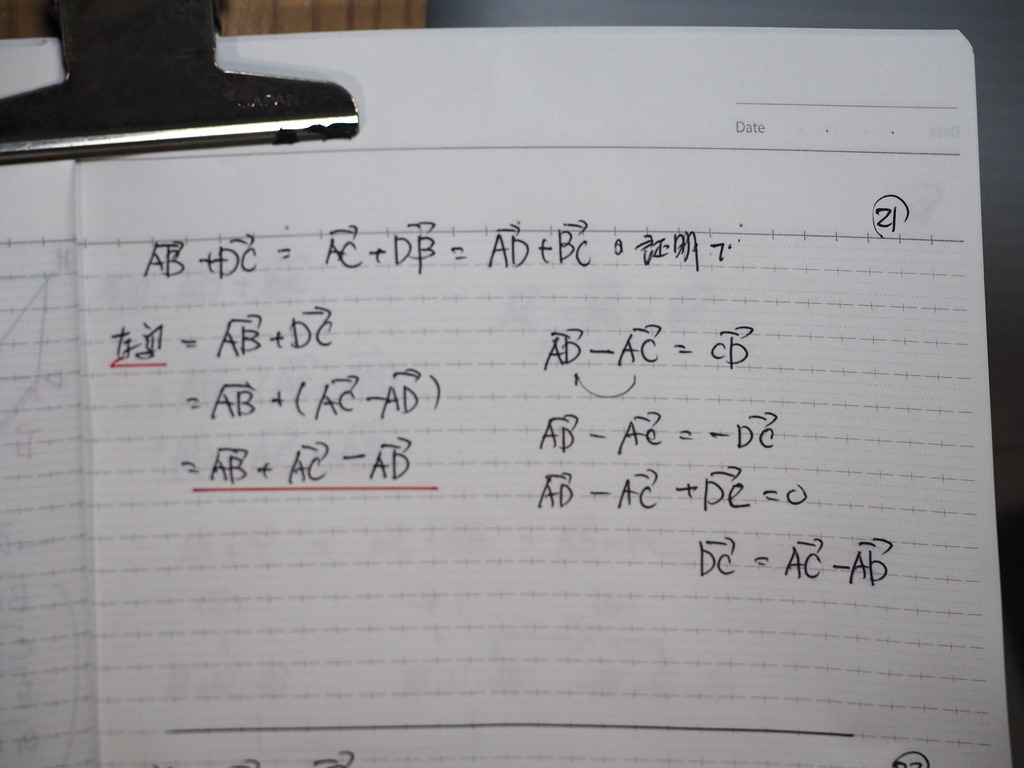 JAPAN
Date
㉑
AB→ + DC→ = AC→ + DB→ = AD→ + BC→ の証明
左辺 = AB→ + DC→
= AB→ + (AC→ - AD→)
= AB→ + AC→ - AD→
AD→ - AC→ = CD→
AD→ - AC→ = -DC→
AD→ - AC→ + DC→ = 0
DC→ = AC→ - AD→